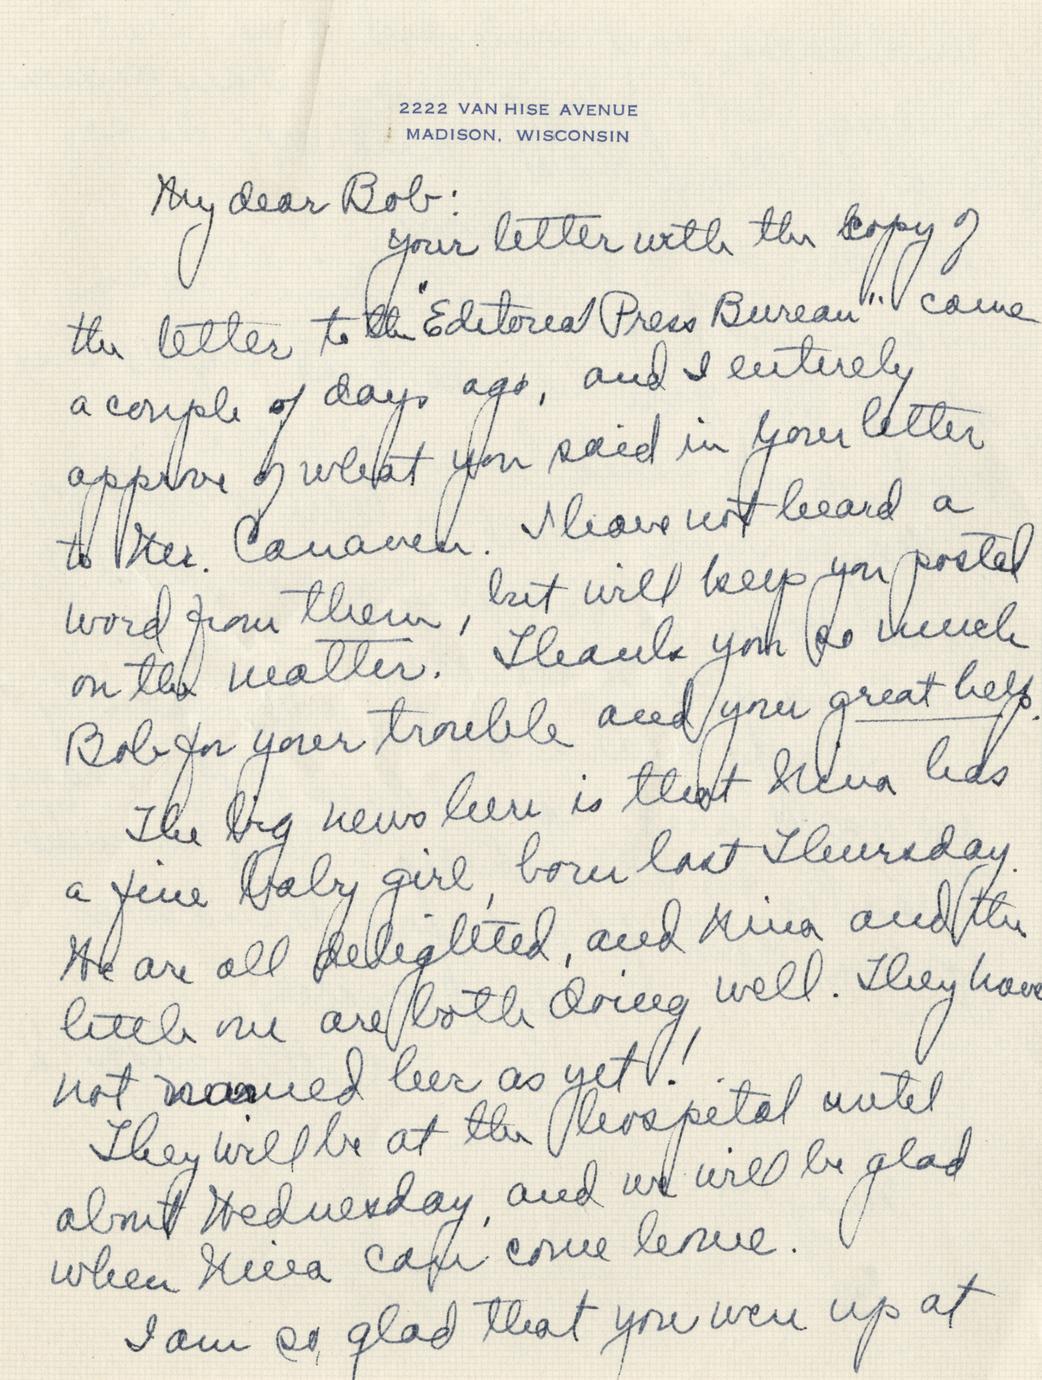 2222 VAN HISE AVENUE
MADISON, WISCONSIN
My dear Bob:
your letter with the copy of
the letter to the "Editorial Press Bureau" came
a couple of days ago, and I entirely
approve of what you said in your letter
to Mr. Canaven. I have not heard a
word from them, but will keep you posted
on the matter. Thank you so much
Bob for your trouble and your great help.
The big news here is that Nina has
a fine baby girl, born last Thursday.
We are all delighted, and Nina and the
little one are both doing well. They have
not named her as yet!
They will be at the hospital until
about Wednesday, and we will be glad
when Nina can come home.
I am so, glad that you were up at